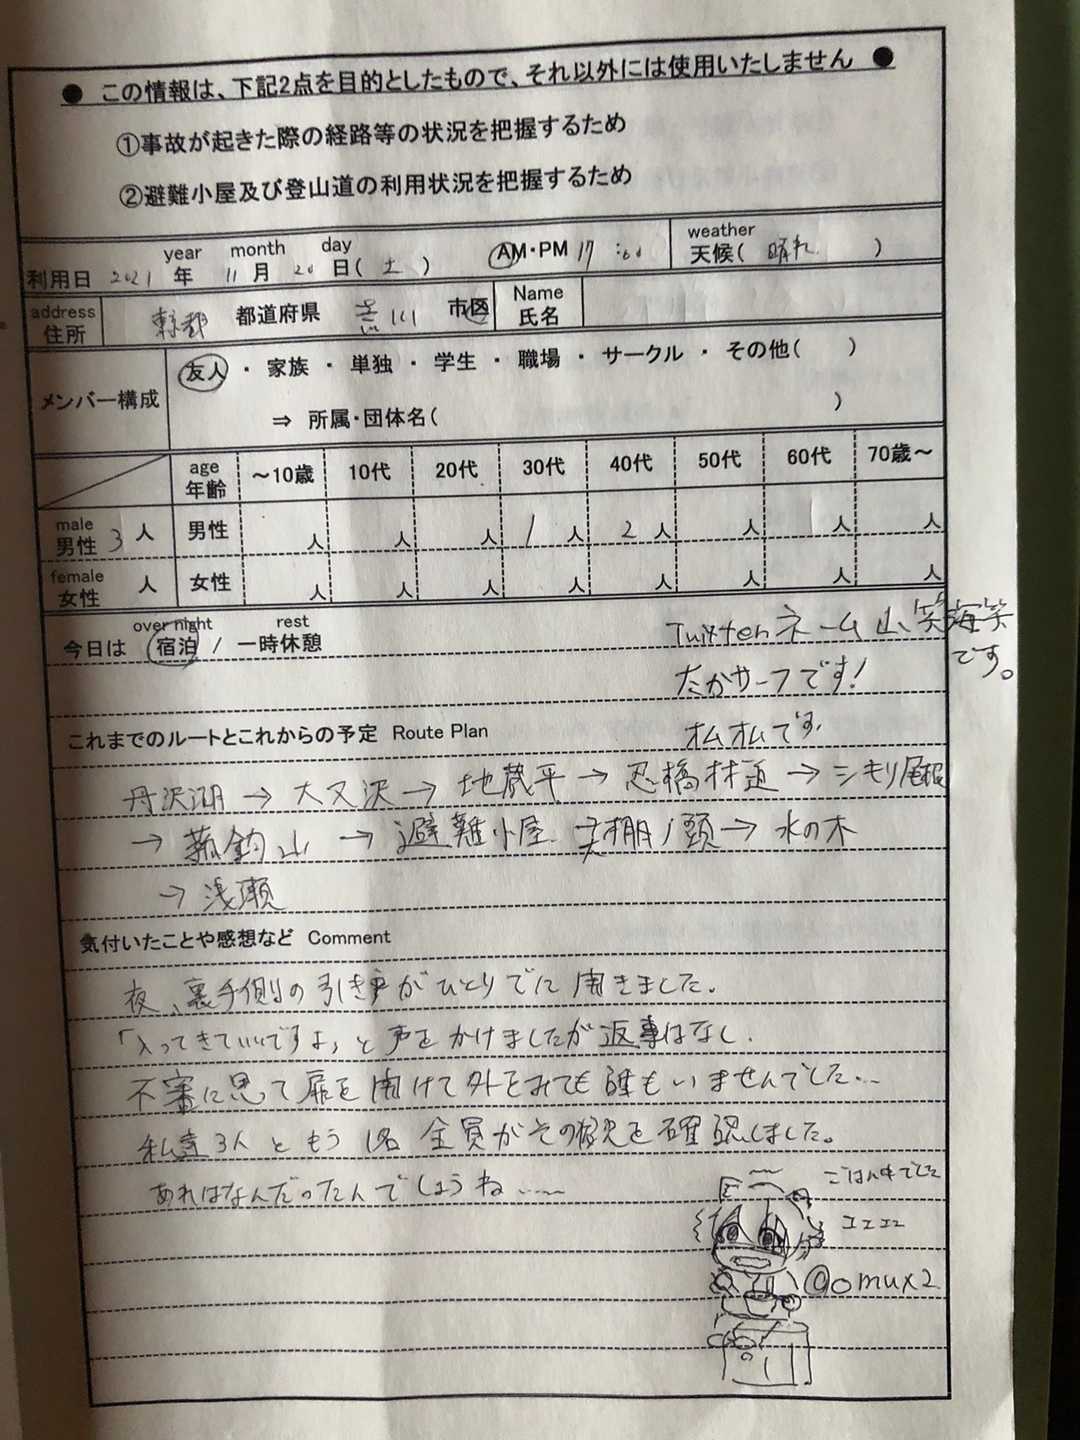 ● この情報は、下記2点を目的としたもので、それ以外には使用いたしません ●
①事故が起きた際の経路等の状況を把握するため
②避難小屋及び登山道の利用状況を把握するため
利用日 2021 year 年 11 month 月 20 day 日(土) AM・PM 17:00 weather 天候(晴れ)
address 住所 東京都 都道府県 荒川 市区 Name 氏名
メンバー構成 友人 ・ 家族 ・ 単独 ・ 学生 ・ 職場 ・ サークル ・ その他( )
⇒ 所属・団体名( )
age 年齢 ～10歳 10代 20代 30代 40代 50代 60代 70歳～
male 男性 3人 男性 人 人 人 1人 2人 人 人 人
female 女性 人 女性 人 人 人 人 人 人 人 人
今日は over night 宿泊 / rest 一時休憩
Twitterネーム 山笑海笑です。
たかサーフです!
オムオムです
これまでのルートとこれからの予定 Route Plan
丹沢湖→大又沢→地蔵平→忍橋林道→シキリ尾根
→菰釣山→避難小屋 夫婦ノ頭→水の木
→浅瀬
気付いたことや感想など Comment
夜、裏手側の引き戸がひとりでに開きました。
「入ってきていいですよ」と声をかけましたが返事はなし.
不審に思って扉を開けて外をみても誰もいませんでした…
私達3人ともう1名 全員がその様を確認しました。
あれはなんだったんでしょうね……
ごはん中でした
コエエエ
@omux2